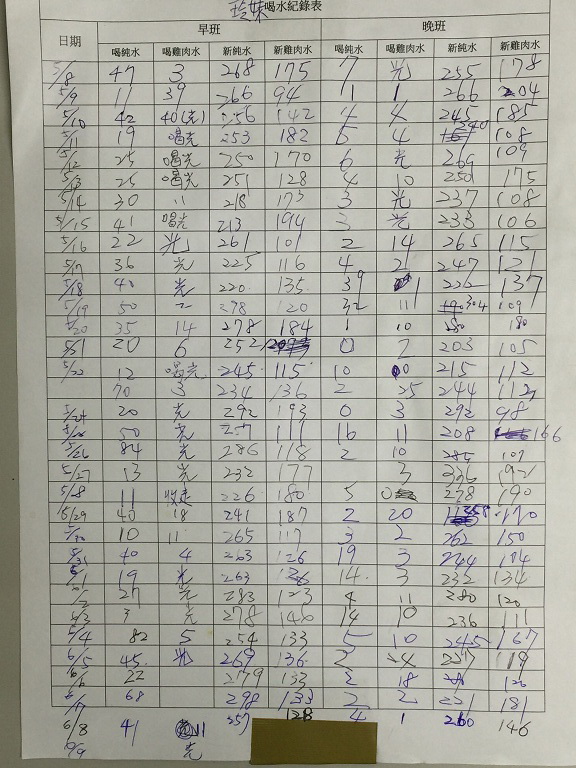 珍妹喝水紀錄表
日期 早班 晚班
喝純水 喝雞肉水 新純水 新雞肉水 喝純水 喝雞肉水 新純水 新雞肉水
5/8 47 3 268 175 7 光 255 178
5/9 11 39 266 94 1 1 266 204
5/10 42 40(光) 256 142 4 4 245 185
5/11 19 喝光 253 182 5 4 340 108
5/12 25 喝光 250 170 6 光 269 109
5/13 25 喝光 251 128 4 10 250 175
5/14 30 11 218 173 3 光 237 108
5/15 41 喝光 213 194 3 光 233 106
5/16 22 光 261 101 2 14 265 115
5/17 36 光 225 116 4 21 247 121
5/18 40 光 220 135 39 1 222 137
5/19 50 2 278 120 32 11 304 109
5/20 35 14 278 184 1 10 180 180
5/21 20 6 252 0 2 203 105
5/22 12 喝光 245 115 10 0 215 112
70 3 234 136 2 25 244 112
5/24 20 光 292 193 0 3 292 98
50 光 111 16 11 208 166
5/26 84 光 286 118 2 10 285 109
5/27 13 光 232 177 3 336 192
5/28 11 收走 226 180 5 0 278 190
5/29 40 18 241 187 2 20 358 170
5/30 10 11 265 117 3 2 262 150
5/31 40 4 263 126 19 3 244 104
6/1 19 光 263 126 14 3 232 134
6/2 27 光 283 123 4 11 280 120
6/3 3 光 278 146 14 10 236 111
6/4 82 5 254 133 5 10 245 167
6/5 45 光 269 136 2 4 227 119
6/6 22 279 133 2 18 120
6/7 68 298 133 2 2 221 181
6/8 41 11 257 128 4 1 260 146
6/9 光